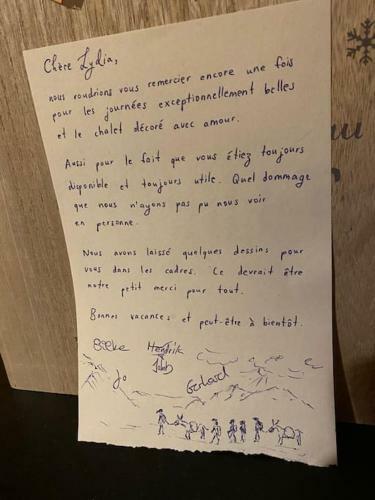 Chère Lydia,
nous voudrions vous remercier encore une fois
pour les journées exceptionnellement belles
et le chalet décoré avec amour.
Aussi pour le fait que vous étiez toujours
disponible et toujours utile. Quel dommage
que nous n'ayons pas pu nous voir
en personne.
Nous avons laissé quelques dessins pour
vous dans les cadres. Ce devrait être
notre petit merci pour tout.
Bonnes vacances et peut-être à bientôt.
Hendrik
Jo
Gerhard